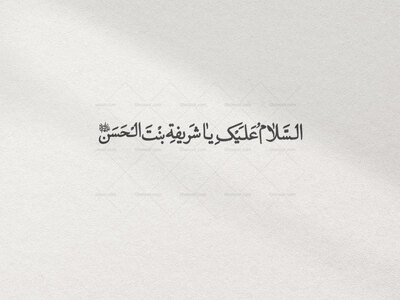 السَّلامُ عَلَیْکِ یٰا شَریفةِ بنْتَ الْحَسَنْ